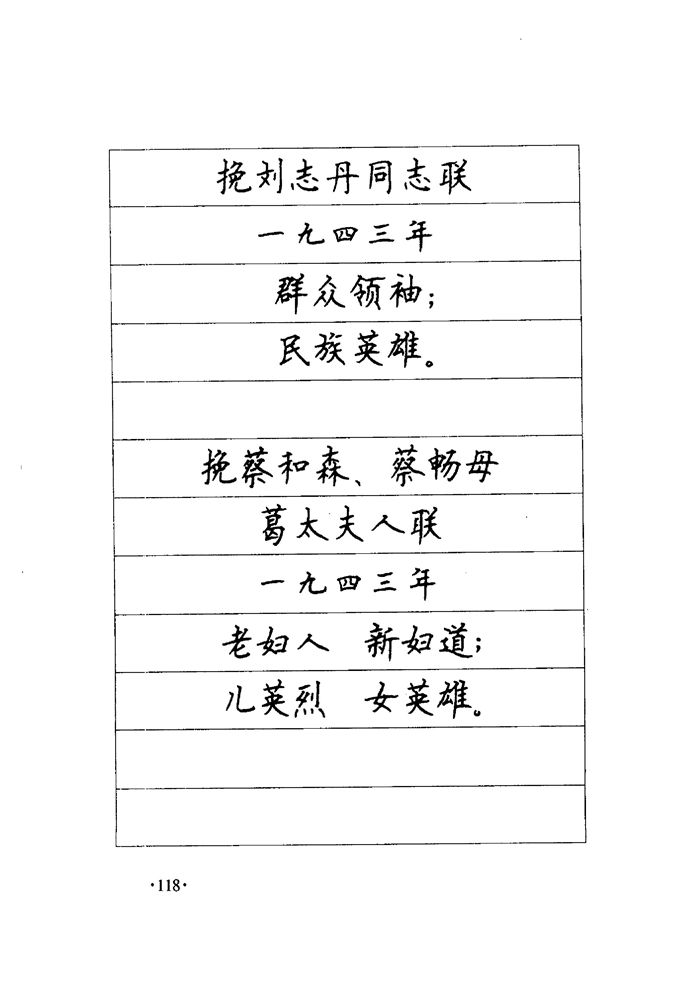 挽刘志丹同志联
一九四三年
群众领袖；
民族英雄。
挽蔡和森、蔡畅母
葛太夫人联
一九四三年
老妇人　新妇道；
儿英烈　女英雄。
·118·